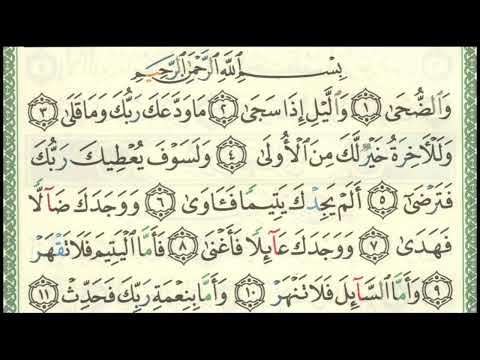 بِسْمِ ٱللَّهِ ٱلرَّحْمَٰنِ ٱلرَّحِيمِ
وَٱلضُّحَىٰ ١ وَٱلَّيْلِ إِذَا سَجَىٰ ٢ مَا وَدَّعَكَ رَبُّكَ وَمَا قَلَىٰ ٣
وَلَلْأٓخِرَةُ خَيْرٌ لَّكَ مِنَ ٱلْأُولَىٰ ٤ وَلَسَوْفَ يُعْطِيكَ رَبُّكَ
فَتَرْضَىٰٓ ٥ أَلَمْ يَجِدْكَ يَتِيمًا فَـَٔاوَىٰ ٦ وَوَجَدَكَ ضَآلًّا
فَهَدَىٰ ٧ وَوَجَدَكَ عَآئِلًا فَأَغْنَىٰ ٨ فَأَمَّا ٱلْيَتِيمَ فَلَا تَقْهَرْ
٩ وَأَمَّا ٱلسَّآئِلَ فَلَا تَنْهَرْ ١٠ وَأَمَّا بِنِعْمَةِ رَبِّكَ فَحَدِّثْ ١١